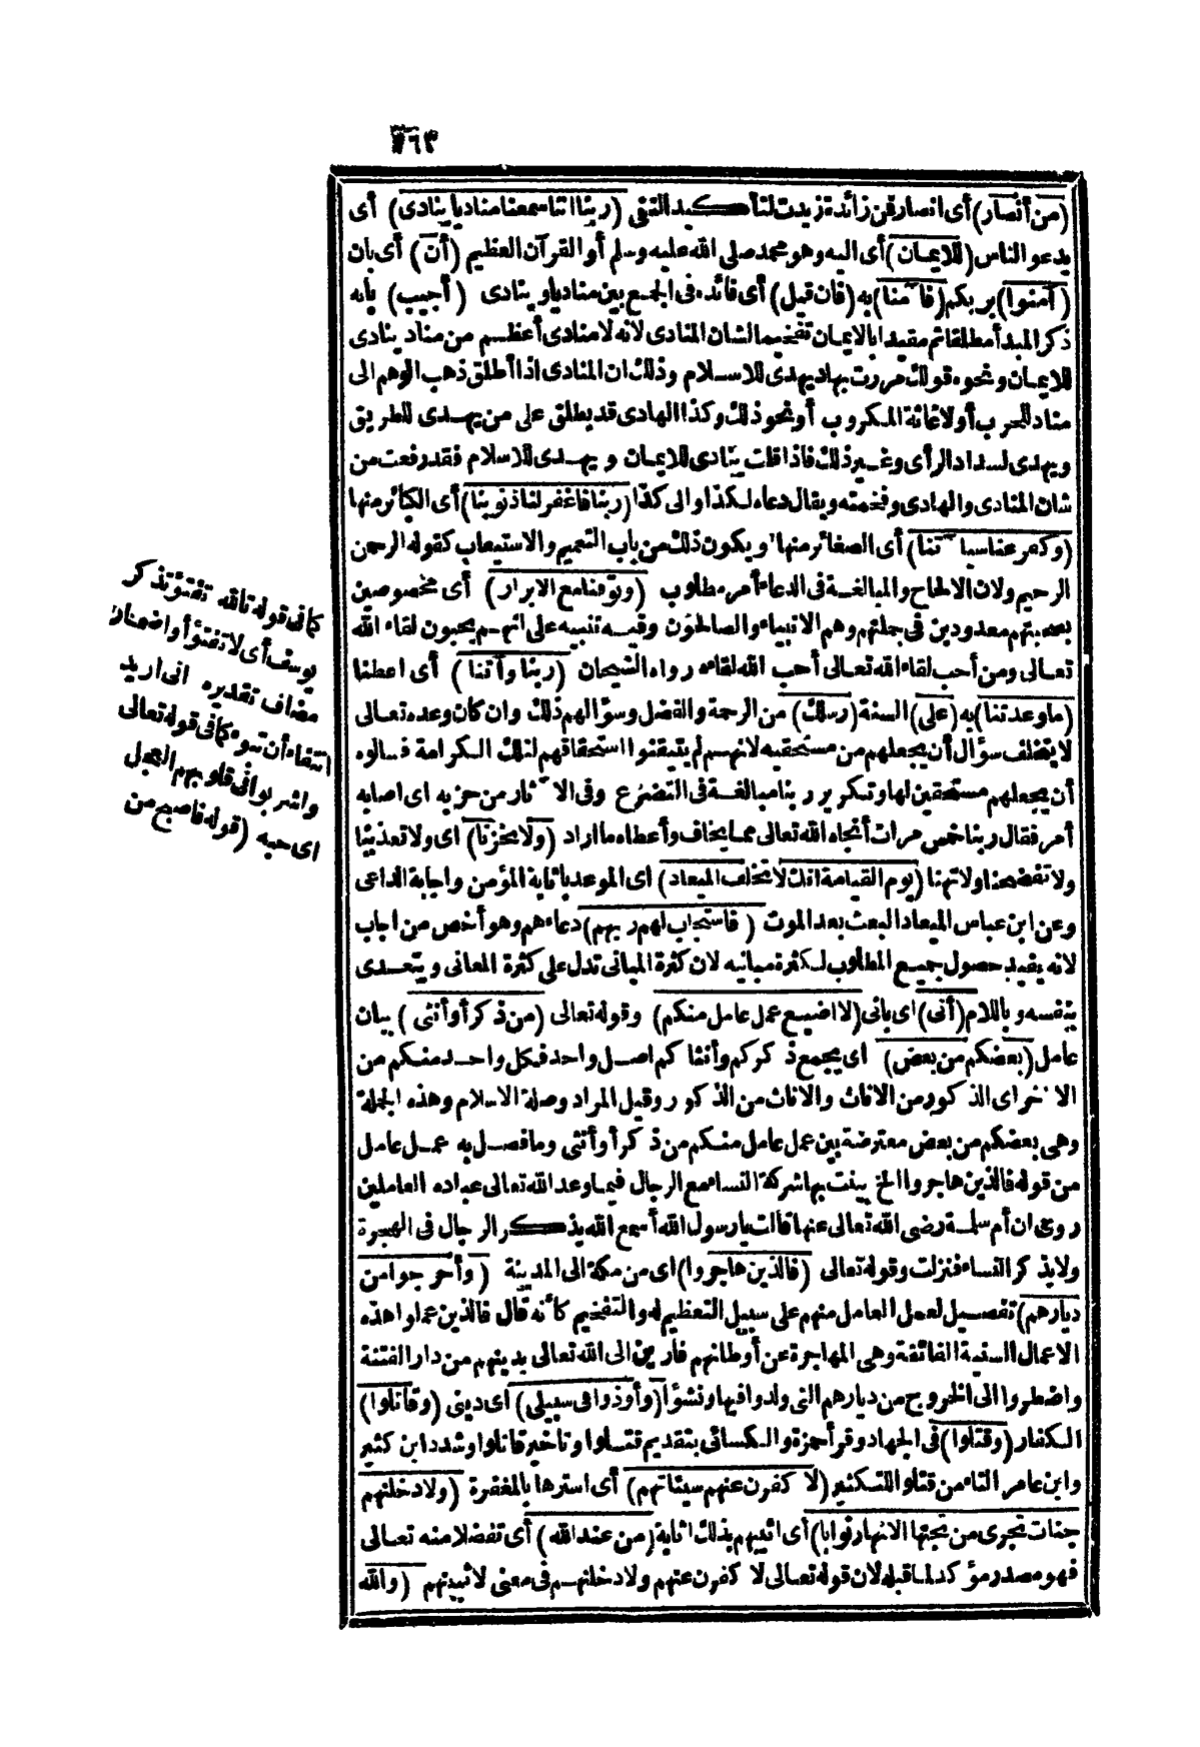 ٢٦٣
(من أنصار) أى انصار فمن زائدة زيدت لتأكيد النفى (ربنا اننا سمعنا مناديا ينادى) أى
يدعو الناس (للايمان) أى اليه وهو محمد صلى الله عليه وسلم أو القرآن العظيم (أن) أى بان
(آمنوا) بربكم (فا منا) به (فان قيل) أى فائده فى الجمع بين مناديا و ينادى (أجيب) بانه
ذكر المبدأ مطلقا ثم مقيدا بالايمان تفخيما لشان المنادى لانه لا منادى أعظم من مناد ينادى
للايمان ونحوه قولك مررت بهاد يهدى للاسلام وذلك ان المنادى اذا أطلق ذهب الوهم الى
مناد للحرب أو لاغاثة المكروب أو نحو ذلك وكذا الهادى قد يطلق على من يهدى للطريق
ويهدى لسداد الرأى وغير ذلك فاذا قلت ينادى للايمان و يهدى للاسلام فقد رفعت من
شان المنادى والهادى وفخمته ويقال دعاه لكذا والى كذا (ربنا فاغفر لنا ذنوبنا) أى الكبائر منها
(وكفر عنا سيا تنا) أى الصغائر منها و يكون ذلك من باب التعميم والاستيعاب كقوله الرحمن
الرحيم ولان الالحاح والمبالغة فى الدعاء أمر مطلوب (وتوفنا مع الابرار) أى مخصوصين
بصحبتهم معدودين فى جملتهم وهم الانبياء والصالحون وفيه تنبيه على انهم يحبون لقاء الله
تعالى ومن أحب لقاء الله تعالى أحب الله لقاءه رواه الشيخان (ربنا وآتنا) أى اعطنا
(ما وعدتنا) به (على) السنة (رسلك) من الرحمة والفضل وسؤالهم ذلك وان كان وعده تعالى
لا يتخلف سؤال أن يجعلهم من مستحقيه لانهم لم يتيقنوا استحقاقهم لتلك الكرامة فسالوه
أن يجعلهم مستحقين لها وتكرير ربنا مبالغة فى التضرع وفى الا ثار من حزبه اى اصابه
أمر فقال ربنا خمس مرات أنجاه الله تعالى مما يخاف وأعطاه ما اراد (ولا تخزنا) اى ولا تعذبنا
ولا تفضحنا ولا تهنا (يوم القيامة انك لا تخلف الميعاد) اى الموعد باثابة المؤمن واجابة الداعى
وعن ابن عباس الميعاد البعث بعد الموت (فاستجاب لهم ربهم) دعاءهم وهو أخص من اجاب
لانه يفيد حصول جميع المطلوب لكثرة مبانيه لان كثرة المبانى تدل على كثرة المعانى و يتعدى
بنفسه وباللام (أنى) اى بانى (لا اضيع عمل عامل منكم) وقوله تعالى (من ذكر أو أنثى) بيان
عامل (بعضكم من بعض) اى يجمع ذكركم وأنثاكم اصل واحد فكل واحد منكم من
الا خر اى الذكور من الاناث والاناث من الذكور وقيل المراد وصلة الاسلام وهذه الجملة
وهى بعضكم من بعض معترضة بين عمل عامل منكم من ذكر أو أنثى وما فصل به عمل عامل
من قوله فالذين هاجروا الخ بينت بها شركة النساء مع الرجال فيما وعد الله تعالى عباده العاملين
روى ان أم سلمة رضى الله تعالى عنها قالت يا رسول الله أسمع الله يذكر الرجال فى الهجرة
ولا يذكر النساء فنزلت وقوله تعالى (فالذين هاجروا) اى من مكة الى المدينة (وأخرجوا من
ديارهم) تفصيل لعمل العامل منهم على سبيل التعظيم له والتفخيم كأنه قال فالذين عملوا هذه
الاعمال السنية الفائقة وهى المهاجرة عن أوطانهم فارين الى الله تعالى بدينهم من دار الفتنة
واضطروا الى الخروج من ديارهم التى ولدوا فيها ونشؤا (وأوذوا فى سبيلى) اى دينى (وقاتلوا)
الكفار (وقتلوا) فى الجهاد وقرأ حمزة والكسائى بتقديم قتلوا وتاخير قاتلوا وشدد ابن كثير
وابن عامر التاء من قتلوا للتكثير (لا كفرن عنهم سيئاتهم) أى استرها بالمغفرة (ولادخلنهم
جنات تجرى من تحتها الانهار ثوابا) أى اثيبهم بذلك اثابة (من عند الله) أى تفضلا منه تعالى
فهو مصدر مؤكد لما قبله لان قوله تعالى لا كفرن عنهم ولادخلنهم فى معنى لاثيبنهم (والله
كما فى قوله تالله تفتؤ تذكر
يوسف أى لا تفتؤ أو اضمار
مضاف تقديره انى اريد
انتفاء أن تبوء كما فى قوله تعالى
واشربوا فى قلوبهم العجل
اى حبه (قوله فاصبح من